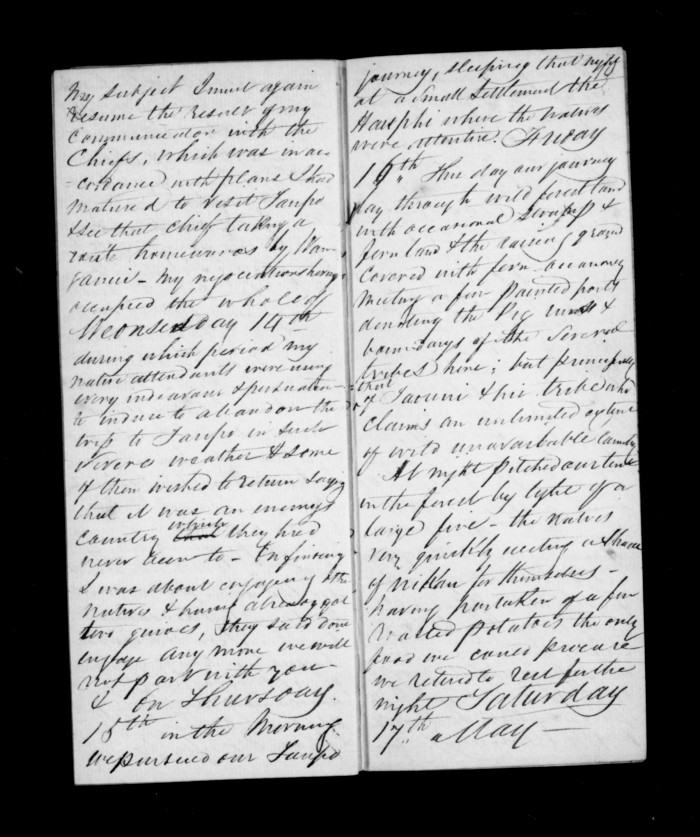 My subject I must again
resume the result of my
communication with the
Chiefs, which was in ac-
-cordance with plans I had
matured to visit Taupo
& see that chief taking a
route homewards by Wan-
ganui - My negociations having
occupied the whole of
Wednesday 14th
during which period my
native attendants were using
every endeavour & persuation
to induce to abandon the
trip to Taupo in such
severe weather & some
of them wished to return saying
that it was an enemys
country which they had
never been to - On finding
I was about engaging other
natives & having already got
two guides, they said dont
engage any more we will
not part with you
& on Thursday
15th in the Morning
we pursued our Taupo
journey, sleeping that night
at a small settlement the
where the natives
were attentive. Friday
16th This day our journey
lay through wild forest land
with occasional swamp &
fern land & the rising ground
covered with fern occasionally
meeting a few painted posts
denoting the Pig runs &
boundarys of the several
tribes here; but principally
that
of & his tribe who
claims an unlimited extent
of wild unavailable country
At night pitched our tent
in the forest by light of a
large fire - the natives
very quickly erecting a shade
of nikau for themselves -
having partaken of a few
roasted potatoes the only
food we could procure
we retired to rest for the
night Saturday
17th May -